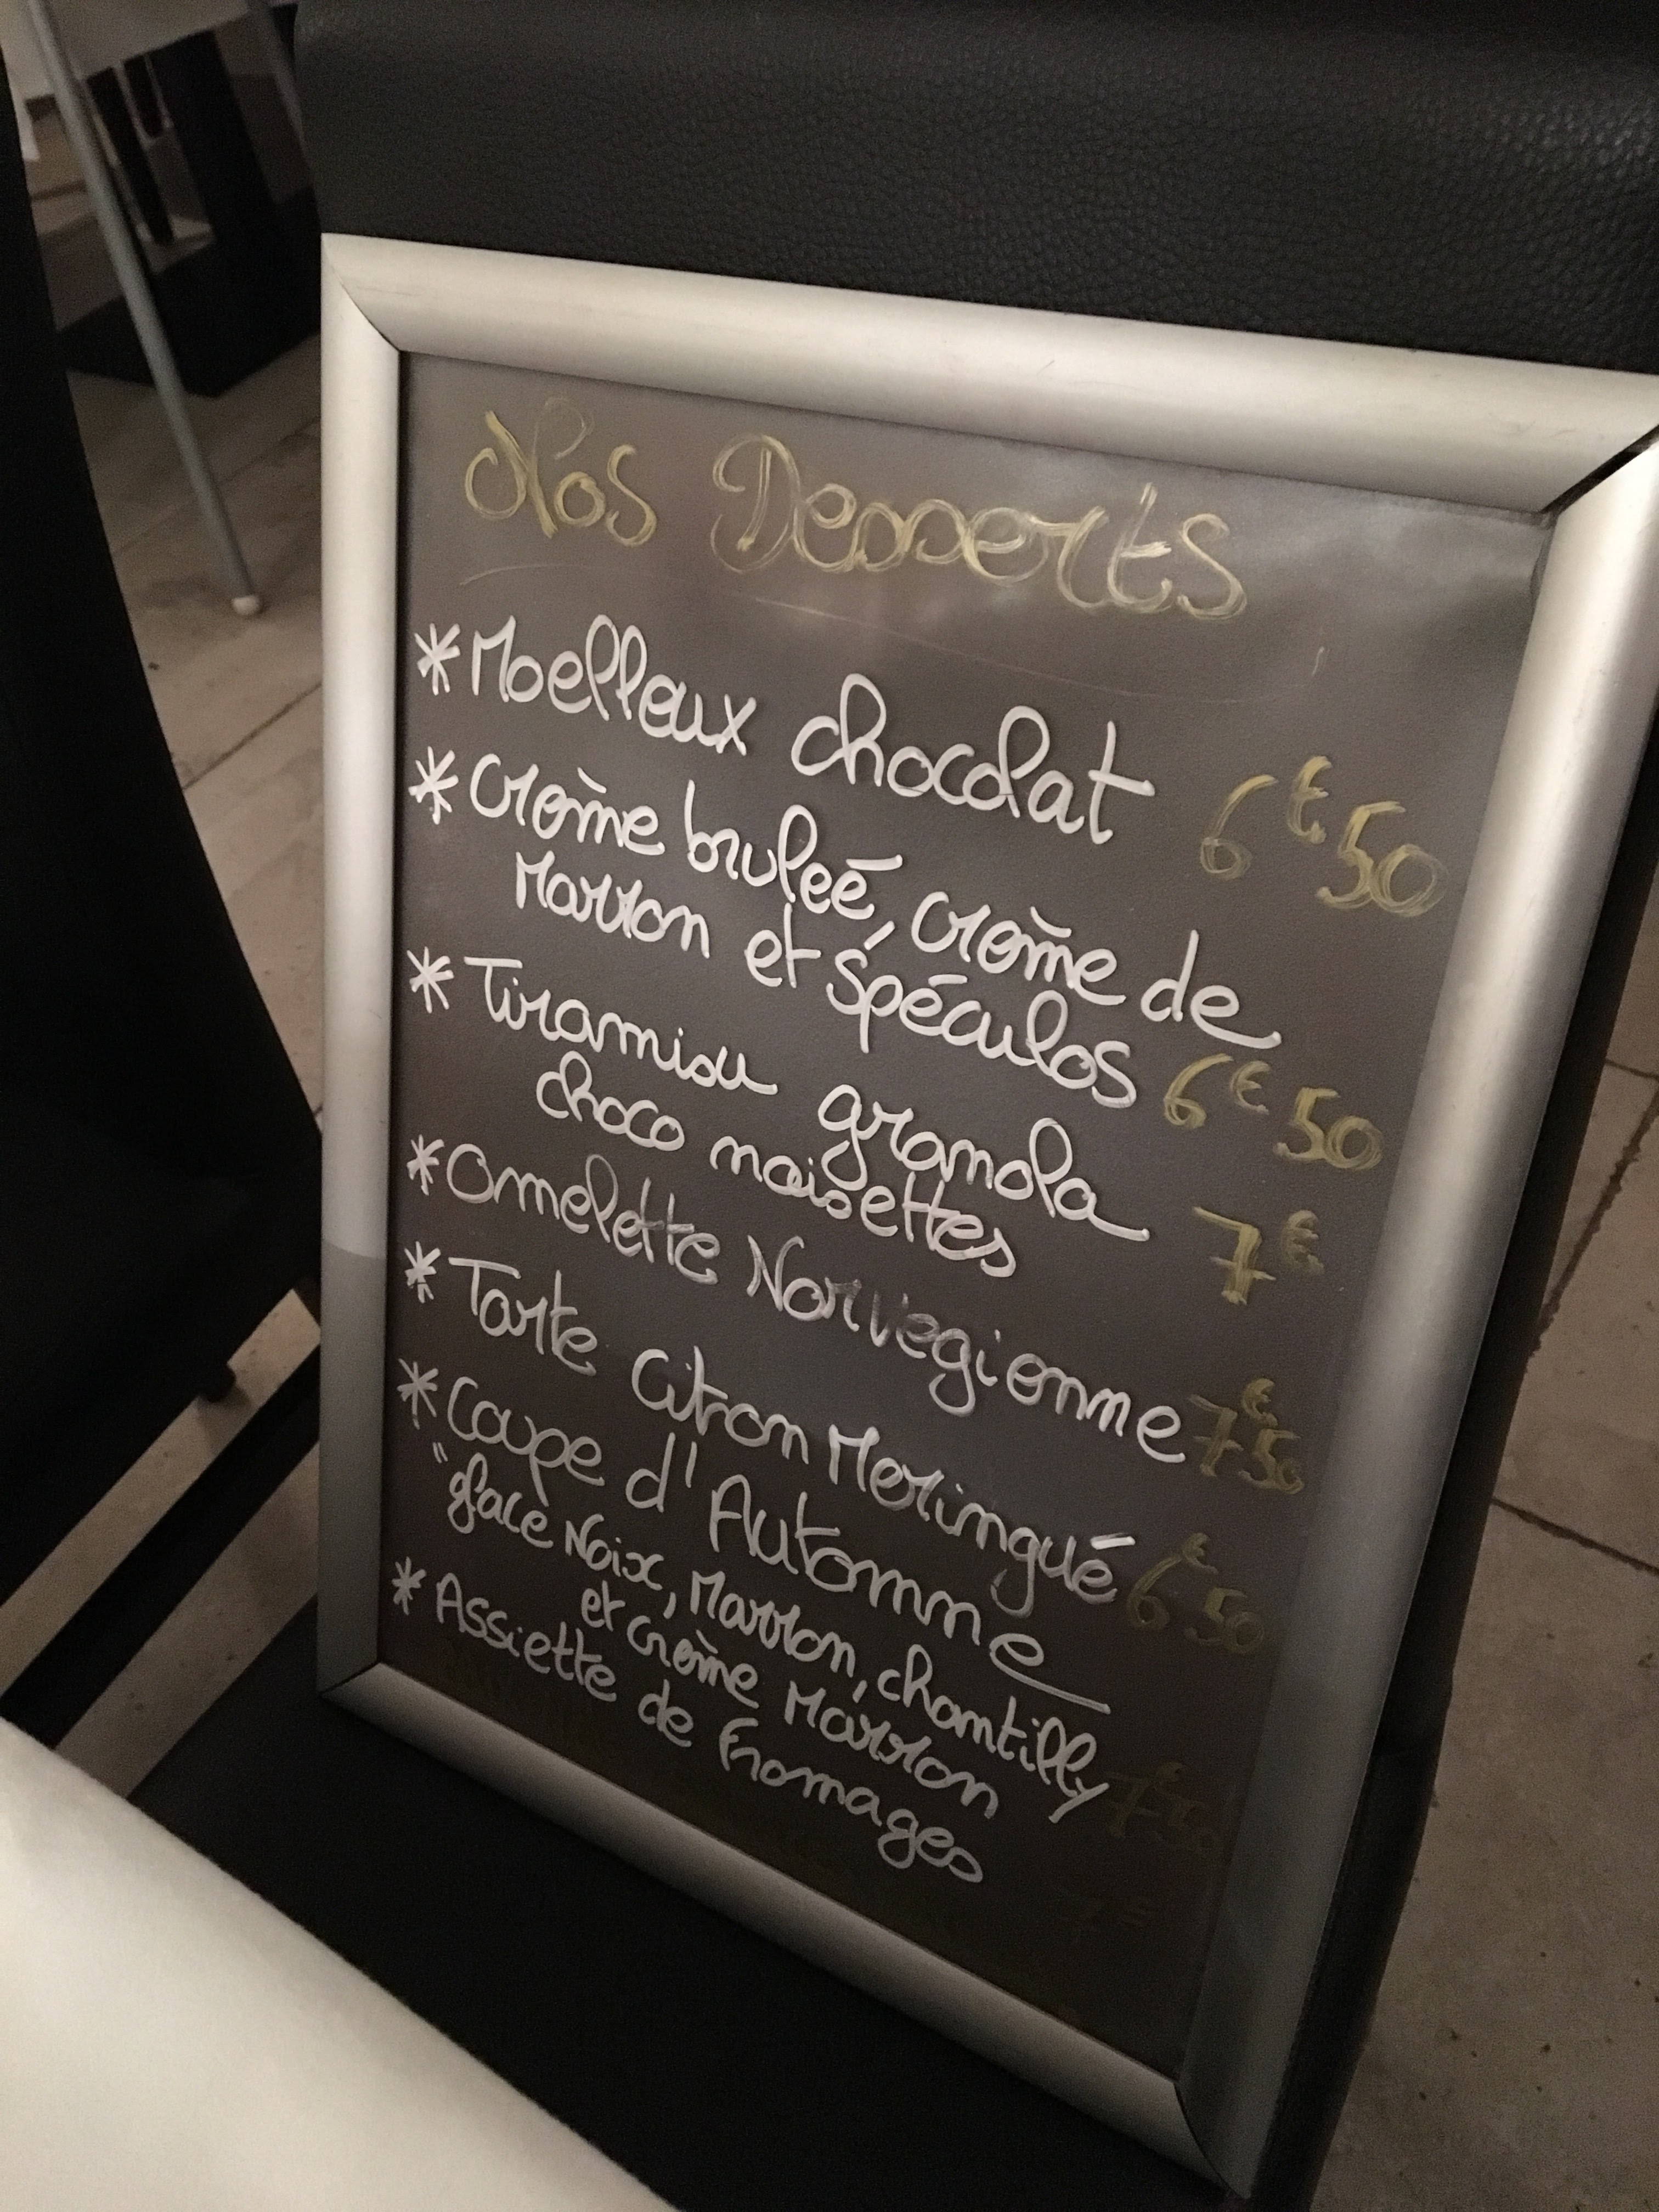 Nos Desserts
* Moelleux chocolat 6€50
* Crème bruleé, crème de
Marron et Spéculos 6€50
* Tiramisu granola
choco noisettes 7€
* Omelette Norvegienne 7€50
* Tarte Citron Meringué 6€50
* Coupe d'Automne
"glace Noix, Marron, chantilly
et crème Marron 7€50
* Assiette de Fromages